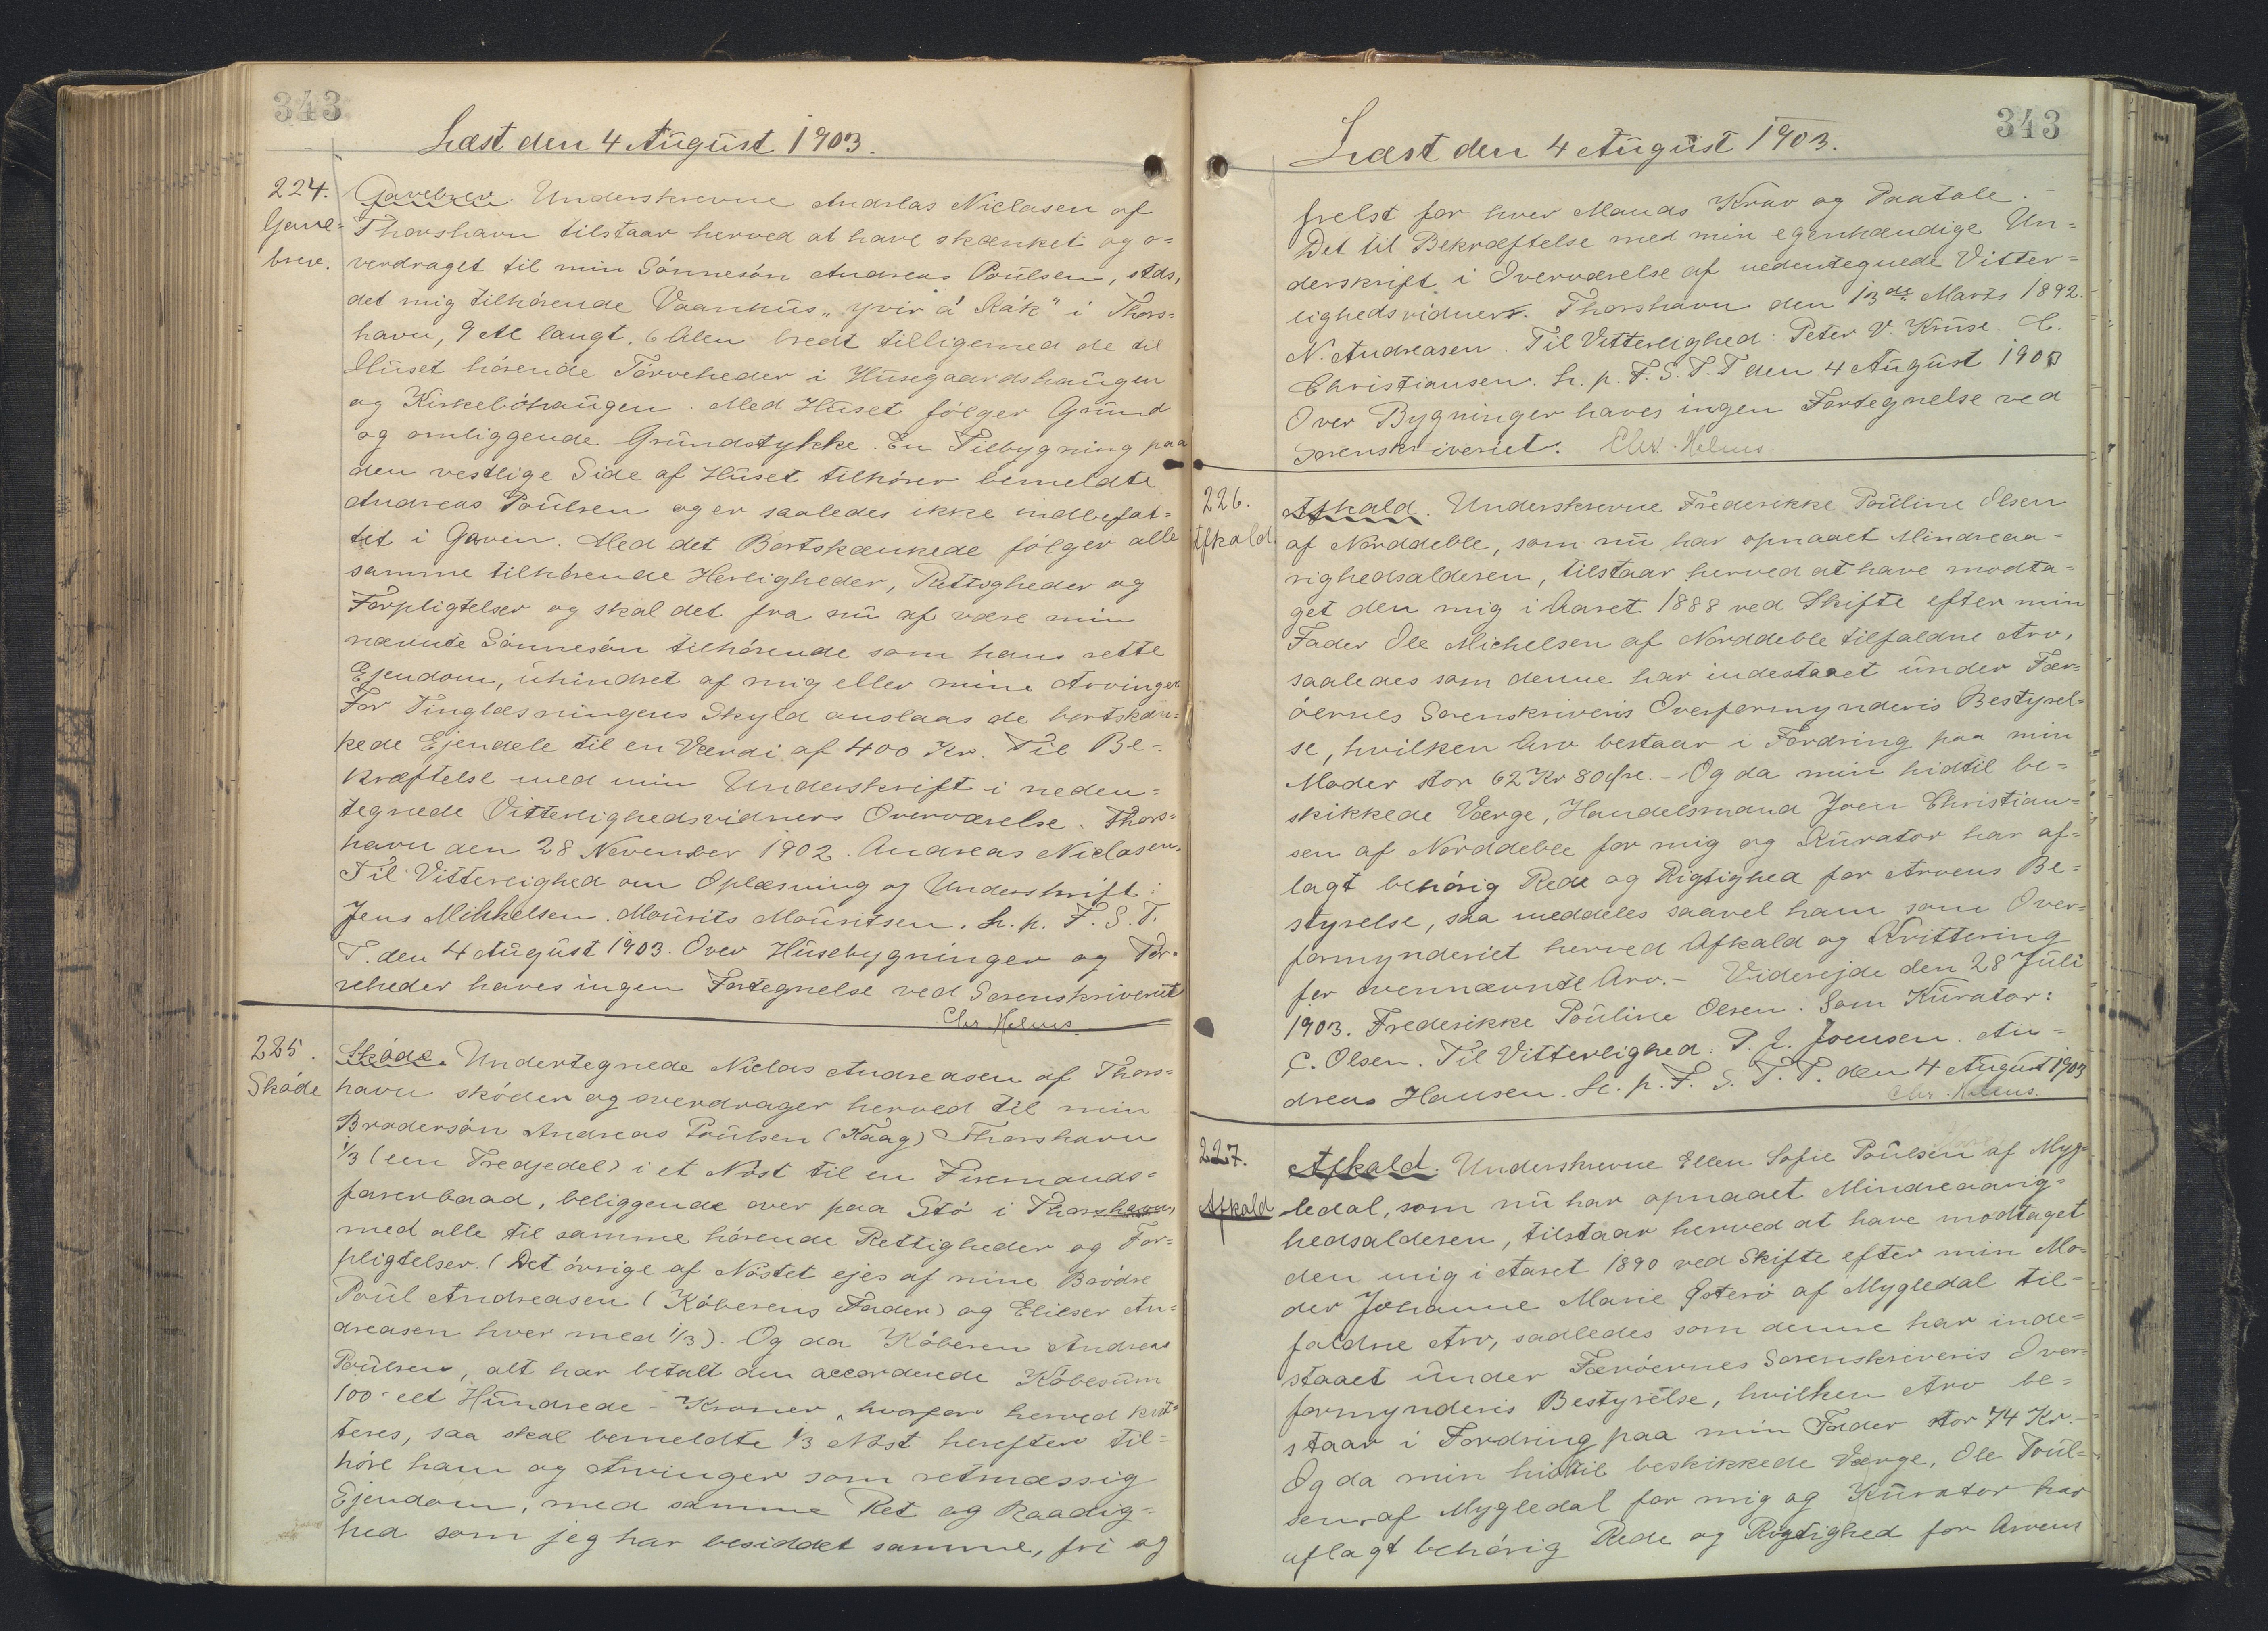 343
Læst den 4 August 1903.
224.
Gave=
breve.
Gavebrev. Underskrevne Andreas Niclasen af
Thorshavn tilstaar herved at have skænket og o=
verdraget til min Sönnesön Andreas Poulsen, stds,
det mig tilhörende Vaanhus "yvir á Rák" i Thors=
havn, 9 Al langt, 6 Alen bredt tilligemed de til
Huset hörende Törveheder i Husegaardshaugen
og Kirkeböhaugen. Med Huset fölger Grund
og omliggende Grundstykke. En Tilbygning paa
den vestlige Side af Huset tilhörer bemeldte
Andreas Poulsen og er saaledes ikke indbefat=
tet i Gaven. Med det Bortskænkede fölger alle
samme tilhörende Herligheder, Rettigheder og
Forpligtelser og skal det fra nu af være min
nævnte Sönnesön tilhörende som hans rette
Ejendom, uhindret af mig eller mine Arvinger
For Tinglæsningens Skyld anslaas de bortskæn=
kede Ejendele til en Værdi af 400 Kr. Til Be=
kræftelse med min Underskrift i neden=
tegnede Vitterlighedsvidners Overværelse. Thors=
havn den 28 November 1902. Andreas Niclasen.
Til Vitterlighed om Oplæsning og Underskrift:
Jens Mikkelsen. Mourits Mouritsen. L. p. F. S. T.
T. den 4 August 1903. Over Husebygninger og Tör=
veheder haves ingen Fortegnelse ved Sorenskriveriet
Chr. Helms.
225.
Sköde
Sköde. Undertegnede Niclas Andreasen af Thors=
havn sköder og overdrager herved til min
Brodersön Andreas Poulsen (Kaag) Thorshavn
1/3 (een Tredjedel) i et Nöst til en Firemands=
farerbaad, beliggende over paa Stö i Thorshavn,
med alle til samme hörende Rettigheder og For=
pligtelser. (Det övrige af Nöstet ejes af mine Brödre
Poul Andreasen (Köberens Fader) og Elieser An=
dreasen hver med 1/3). Og da Köberen Andreas
Poulsen, alt har betalt den accorderede Köbesum
100 - eet Hundrede - Kroner, hvorfor herved kvit=
teres, saa skal bemeldte 1/3 Nöst herefter til=
höre ham og Arvinger som retmæssig
Ejendom, med samme Ret og Raadig=
hed som jeg har besiddet samme, fri og
343
Læst den 4 August 1903.
frelst for hver Mands Krav og Paatale.
Det til Bekræftelse med min egenhændige Un=
derskrift i Overværelse af nedentegnede Vitter=
lighedsvidner. Thorshavn den 13de Marts 1892.
N. Andreasen. Til Vitterlighed: Peter V. Kruse. C.
Christiansen. L. p. F. S. T. T den 4 August 1903
Over Bygninger haves ingen Fortegnelse ved
Sorenskriveriet. Chr. Helms.
226.
Afkald
Afkald. Underskrevne Frederikke Pouline Olsen
af Norddeble, som nu har opnaaet Mindreaa=
righedsalderen, tilstaar herved at have modta=
get den mig i Aaret 1888 ved Skifte efter min
Fader Ole Michelsen af Norddeble tilfaldne Arv,
saaledes som denne har indestaaet under Fær=
öernes Sorenskriveris Overformynderis Bestyrel=
se, hvilken Arv bestaar i Fordring paa min
Moder stor 62 Kr 80 Öre. - Og da min hidtil be=
skikkede Værge, Handelsmand Joen Christian=
sen af Norddeble for mig og Kurator har af=
lagt behörig Rede og Rigtighed for Arvens Be=
styrelse, saa meddeles saavel ham som Over=
formynderiet herved Afkald og Kvittering
for ovennævnte Arv. - Viderejde den 28 Juli
1903. Frederikke Pouline Olsen. Som Kurator:
C. Olsen. Til Vitterlighed: P. J. Joensen. An=
dreas Hansen. L. p. F. S. T. T. den 4 August 1903
Chr. Helms.
227.
Afkald
Afkald. Underskrevne Ellen Sofie Poulsen af Myg=
ledal, som nu har opnaaet Mindreaarig=
hedsalderen, tilstaar herved at have modtaget
den mig i Aaret 1890 ved Skifte efter min Mo=
der Johanne Marie Österö af Mygledal til=
faldne Arv, saaledes som denne har inde=
staaet under Færöernes Sorenskriveris Over=
formynderis Bestyrelse, hvilken Arv be=
staar i Fordring paa min Fader stor 74 Kr. -
Og da min hidtil beskikkede Værge, Ole Poul=
sen af Mygledal for mig og Kurator har
aflagt behörig Rede og Rigtighed for Arvens